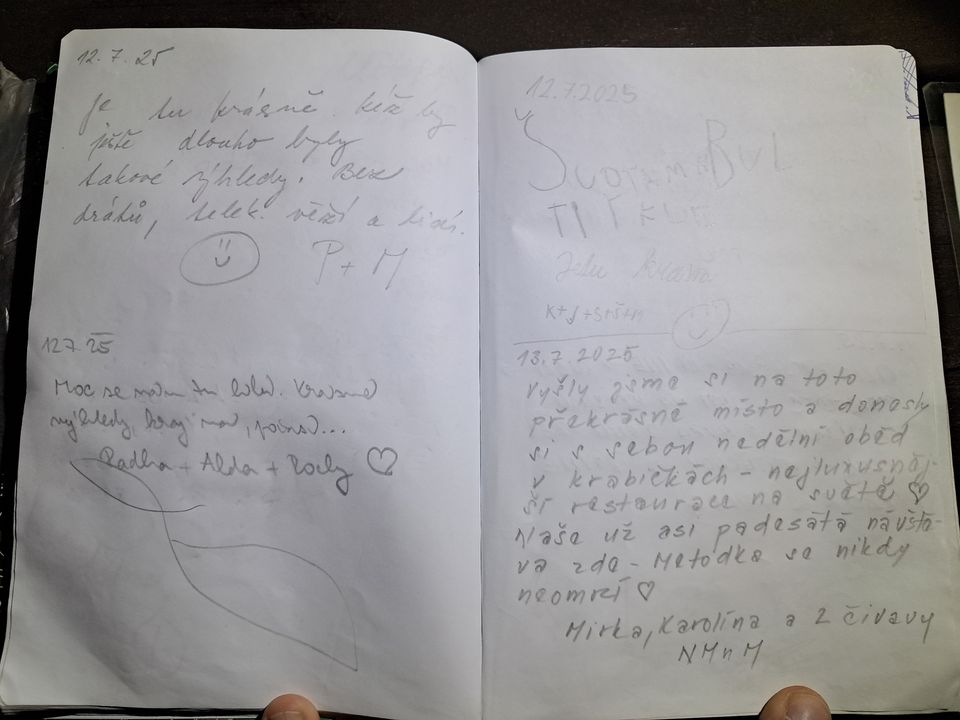 12.7.25
Je tu krásně. Kéž by
ještě dlouho byly
takové výhledy. Bez
drátů, telek. věží a lidí.
P + M
127.25
Moc se nám tu líbí. Krásné
výhledy,
Radka + Alda + Rocky
12.7.2025
Jelu krásně
K+J+S+Š+M
13.7.2025
Vyšly jsme si na toto
překrásné místo a donesly
si s sebou nedělní oběd
v krabičkách - nejluxusněj-
ší restaurace na světě ♡
Naše už asi padesátá návště-
va zde - Metodka se nikdy
neomrzí ♡
Mirka, Karolína a 2 čivavy
NMnM